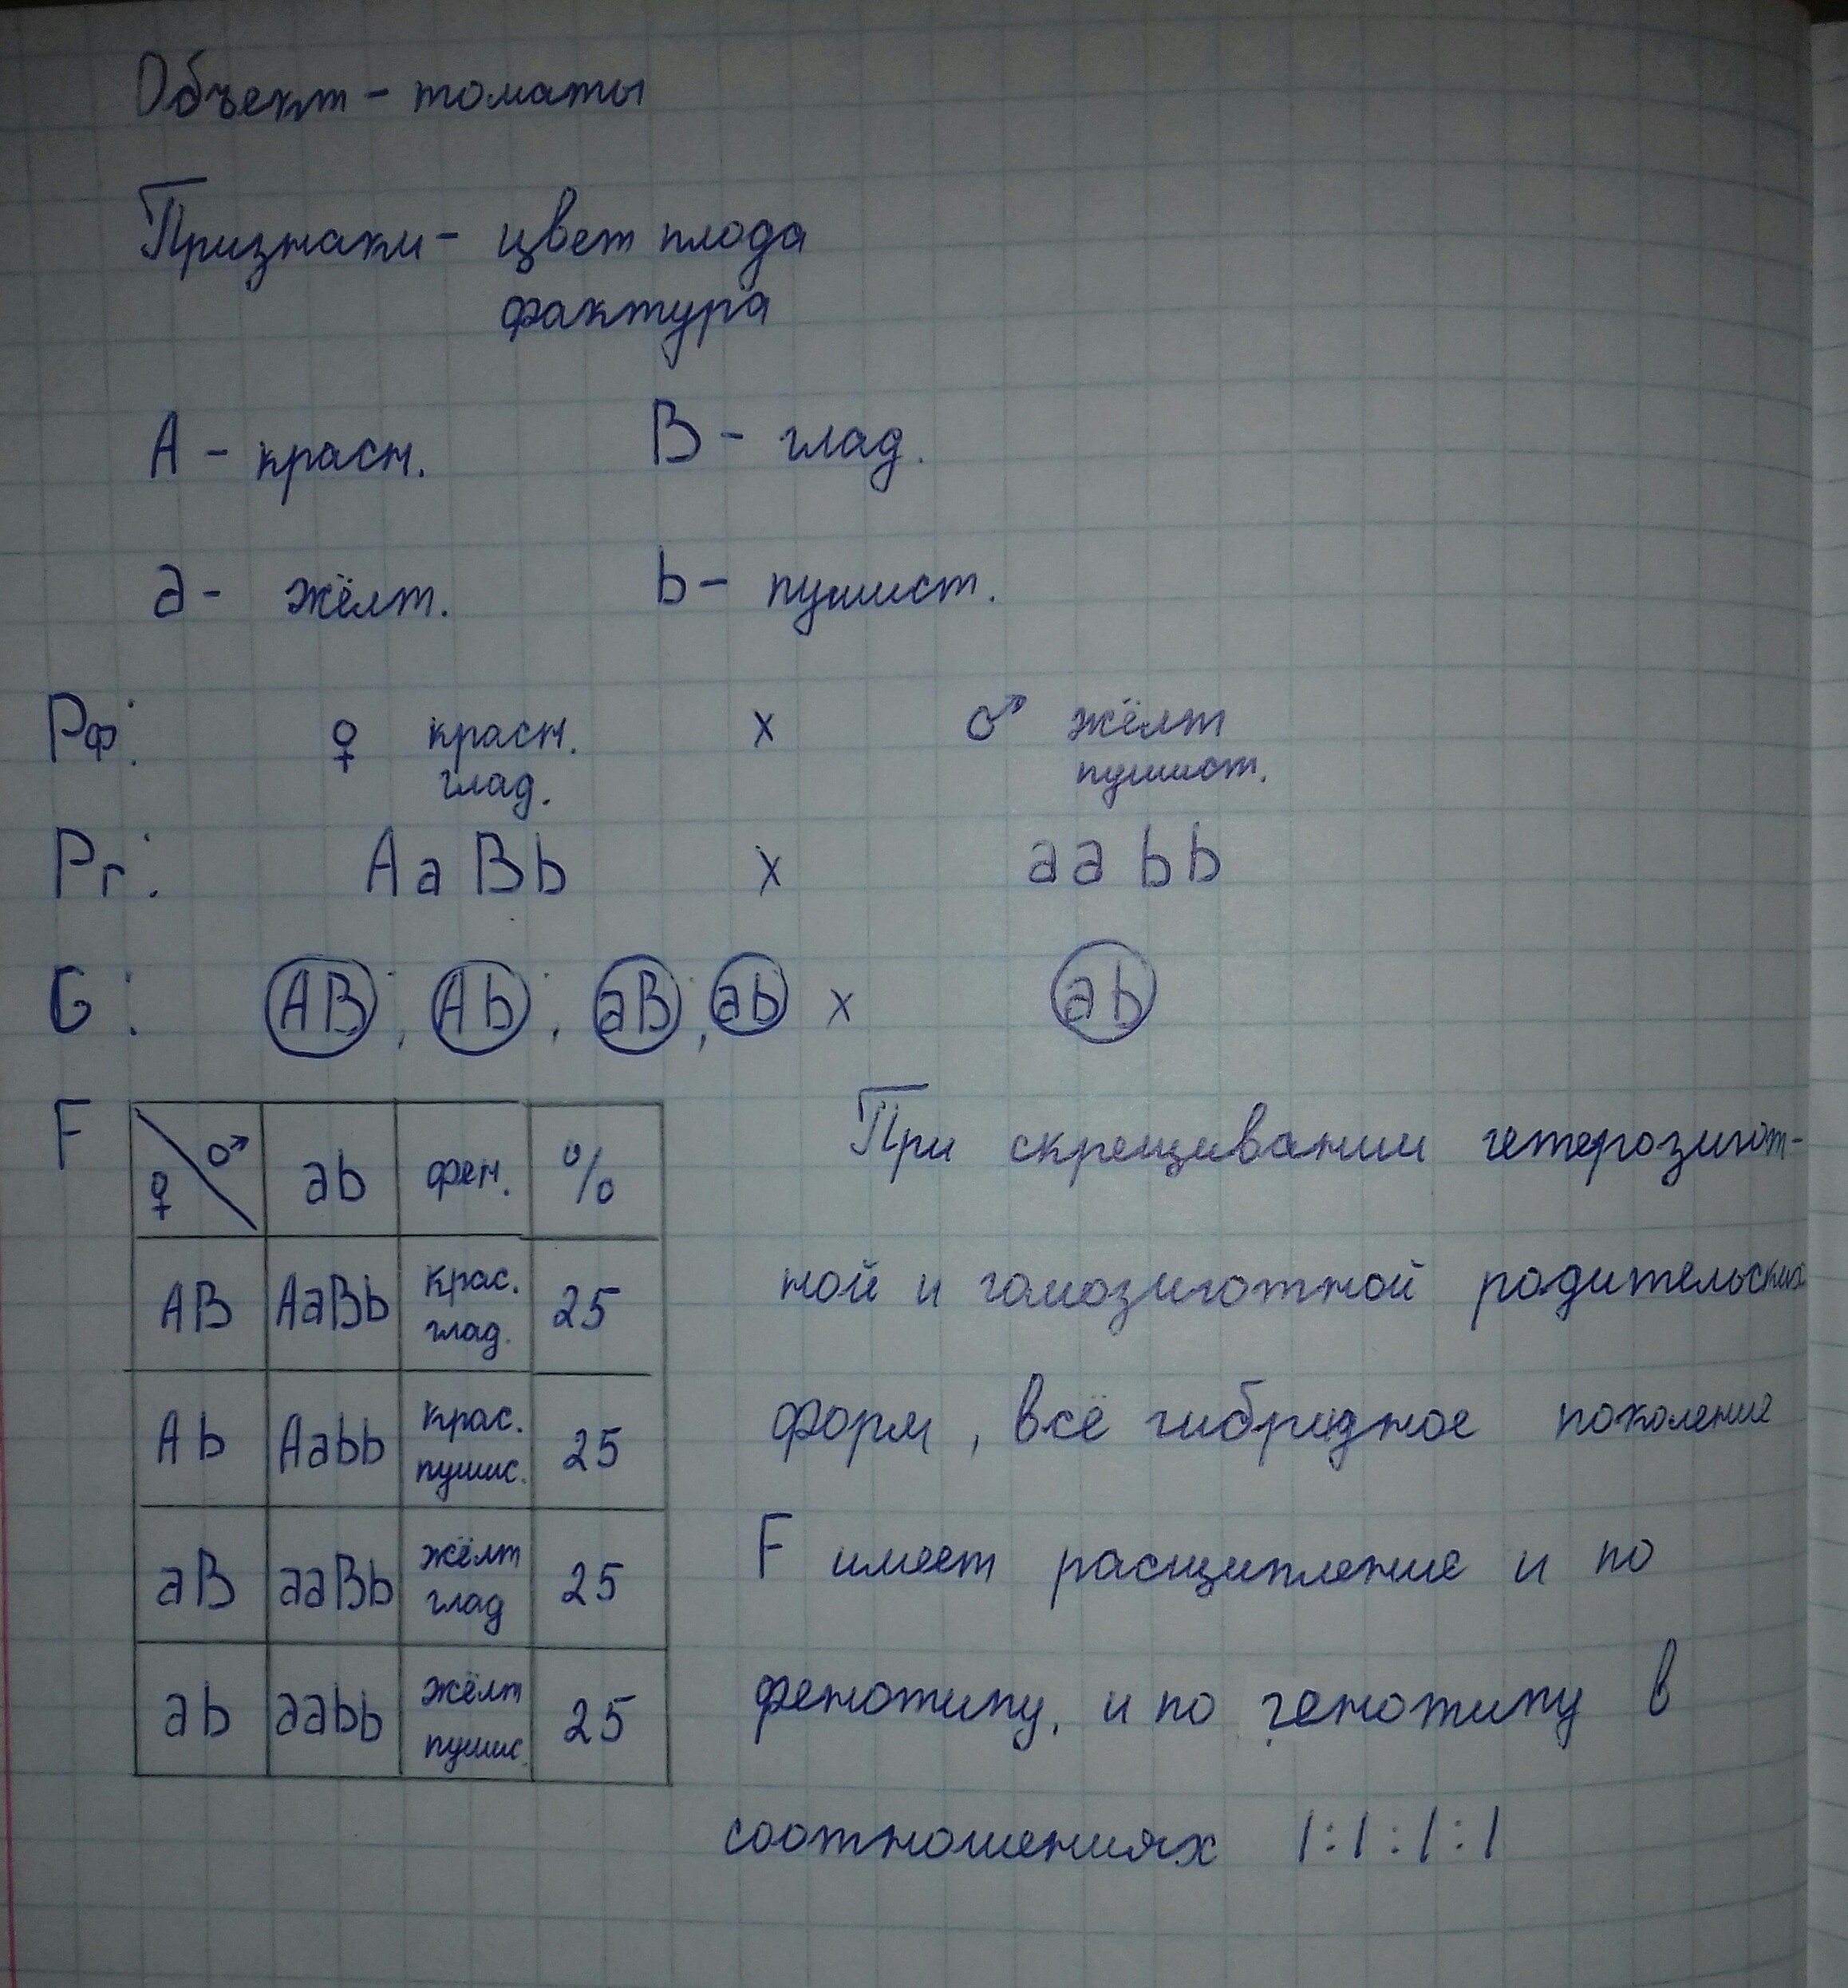 Объект - томаты
Признаки - цвет плода
фактура
А - красн. B - глад.
a - жёлт. b - пушист.
Рф: ♀ красн. x ♂ жёлт
глад. пушист.
Рг: Aa Bb x aa bb
G: AB, Ab, aB, ab x ab
F
♀ ♂ ab фен. %
AB AaBb крас. глад. 25
Ab Aabb крас. пушис. 25
aB aaBb жёлт глад 25
ab aabb жёлт пушис. 25
При скрещивании гетерозигот-
ной и гомозиготной родительских
форм, всё гибридное поколение
F имеет расщипление и по
фенотипу, и по генотипу в
соотношениях 1:1:1:1